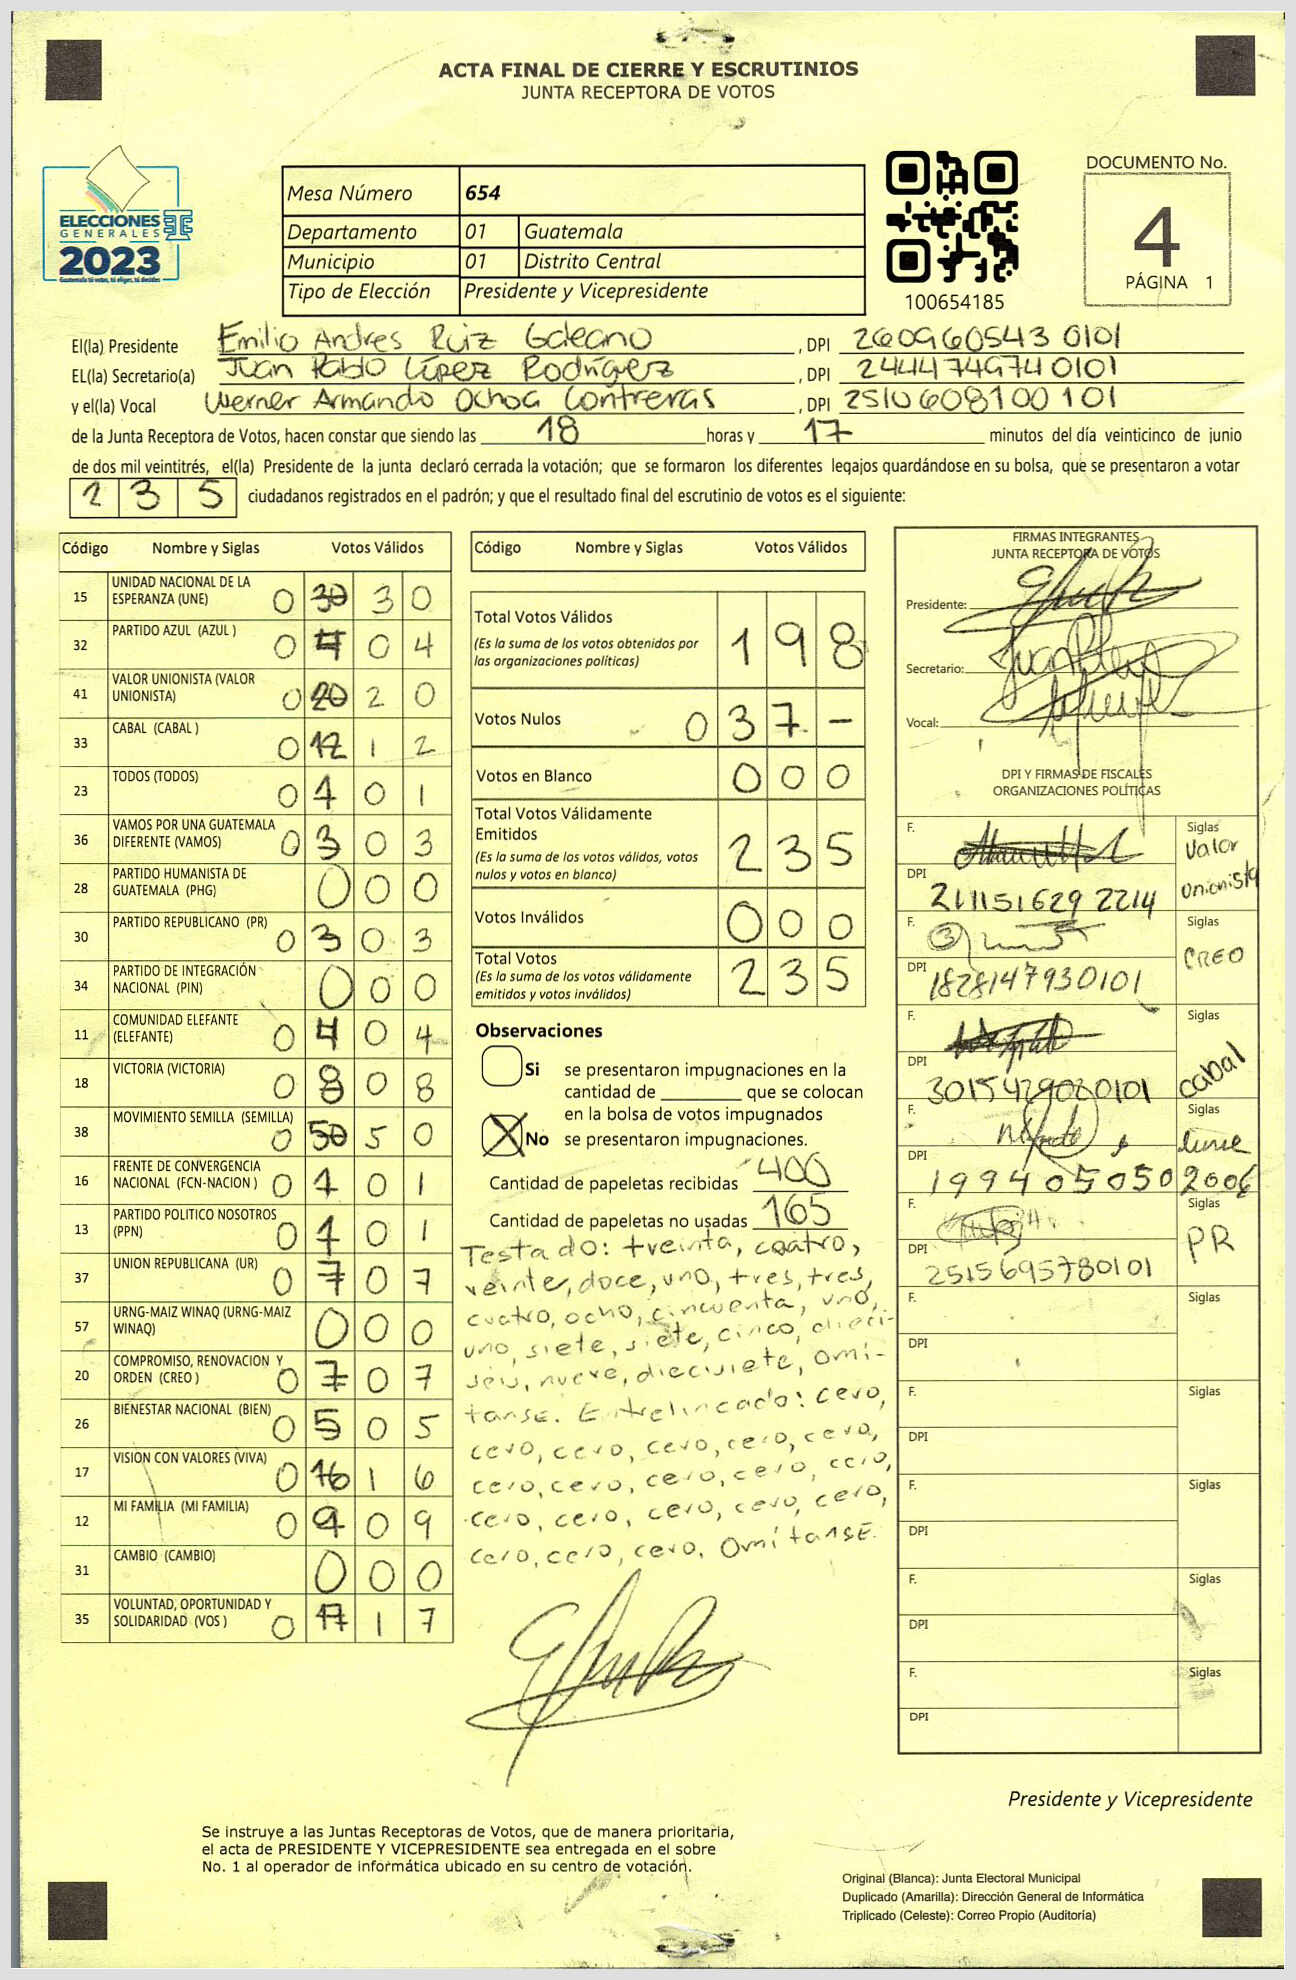 ACTA FINAL DE CIERRE Y ESCRUTINIOS
JUNTA RECEPTORA DE VOTOS
ELECCIONES
GENERALES
2023
Guatemala tú votas, tú eliges, tú decides
Mesa Número 654
Departamento 01 Guatemala
Municipio 01 Distrito Central
Tipo de Elección Presidente y Vicepresidente
100654185
DOCUMENTO No.
4
PÁGINA 1
El(la) Presidente Emilio Andres Ruiz Galeano , DPI 2609605430101
EL(la) Secretario(a) Juan Pablo López Rodríguez , DPI 2444749740101
y el(la) Vocal Werner Armando Ochoa Contreras , DPI 2510608100101
de la Junta Receptora de Votos, hacen constar que siendo las 18 horas y 17 minutos del día veinticinco de junio
de dos mil veintitrés, el(la) Presidente de la junta declaró cerrada la votación; que se formaron los diferentes legajos guardándose en su bolsa, que se presentaron a votar
2 3 5 ciudadanos registrados en el padrón; y que el resultado final del escrutinio de votos es el siguiente:
Código Nombre y Siglas Votos Válidos
15 UNIDAD NACIONAL DE LA ESPERANZA (UNE) 0 30 3 0
32 PARTIDO AZUL (AZUL ) 0 4 0 4
41 VALOR UNIONISTA (VALOR UNIONISTA) 0 20 2 0
33 CABAL (CABAL ) 0 12 1 2
23 TODOS (TODOS) 0 1 0 1
36 VAMOS POR UNA GUATEMALA DIFERENTE (VAMOS) 0 3 0 3
28 PARTIDO HUMANISTA DE GUATEMALA (PHG) 0 0 0
30 PARTIDO REPUBLICANO (PR) 0 3 0 3
34 PARTIDO DE INTEGRACIÓN NACIONAL (PIN) 0 0 0
11 COMUNIDAD ELEFANTE (ELEFANTE) 0 4 0 4
18 VICTORIA (VICTORIA) 0 8 0 8
38 MOVIMIENTO SEMILLA (SEMILLA) 0 50 5 0
16 FRENTE DE CONVERGENCIA NACIONAL (FCN-NACION ) 0 1 0 1
13 PARTIDO POLITICO NOSOTROS (PPN) 0 1 0 1
37 UNION REPUBLICANA (UR) 0 7 0 7
57 URNG-MAIZ WINAQ (URNG-MAIZ WINAQ) 0 0 0
20 COMPROMISO, RENOVACION Y ORDEN (CREO ) 0 7 0 7
26 BIENESTAR NACIONAL (BIEN) 0 5 0 5
17 VISION CON VALORES (VIVA) 0 16 1 6
12 MI FAMILIA (MI FAMILIA) 0 9 0 9
31 CAMBIO (CAMBIO) 0 0 0
35 VOLUNTAD, OPORTUNIDAD Y SOLIDARIDAD (VOS ) 0 17 1 7
Código Nombre y Siglas Votos Válidos
Total Votos Válidos 1 9 8
(Es la suma de los votos obtenidos por
las organizaciones políticas)
Votos Nulos 0 3 7 –
Votos en Blanco 0 0 0
Total Votos Válidamente
Emitidos 2 3 5
(Es la suma de los votos válidos, votos
nulos y votos en blanco)
Votos Inválidos 0 0 0
Total Votos 2 3 5
(Es la suma de los votos válidamente
emitidos y votos inválidos)
Observaciones
Si se presentaron impugnaciones en la
cantidad de ________ que se colocan
en la bolsa de votos impugnados
X No se presentaron impugnaciones.
Cantidad de papeletas recibidas 400
Cantidad de papeletas no usadas 165
Testado: treinta, cuatro,
veinte, doce, uno, tres, tres,
cuatro, ocho, cincuenta, uno,
uno, siete, siete, cinco, dieci-
seis, nueve, diecisiete, Omi-
tanse. Entrelineado: cero,
cero, cero, cero, cero, cero,
cero, cero, cero, cero, cero,
cero, cero, cero, cero, cero,
cero, cero, cero. Omítanse.
FIRMAS INTEGRANTES
JUNTA RECEPTORA DE VOTOS
Presidente:
Secretario:
Vocal:
DPI Y FIRMAS DE FISCALES
ORGANIZACIONES POLÍTICAS
F. Siglas Valor Unionista
DPI 211151629 2214
F. Siglas CREO
DPI 1828147930101
F. Siglas cabal
DPI 3015429080101
F. Siglas
DPI 1994050502006
F. Siglas PR
DPI 2515695780101
F. Siglas
DPI
F. Siglas
DPI
F. Siglas
DPI
F. Siglas
DPI
F. Siglas
DPI
Presidente y Vicepresidente
Se instruye a las Juntas Receptoras de Votos, que de manera prioritaria,
el acta de PRESIDENTE Y VICEPRESIDENTE sea entregada en el sobre
No. 1 al operador de informática ubicado en su centro de votación.
Original (Blanca): Junta Electoral Municipal
Duplicado (Amarilla): Dirección General de Informática
Triplicado (Celeste): Correo Propio (Auditoría)